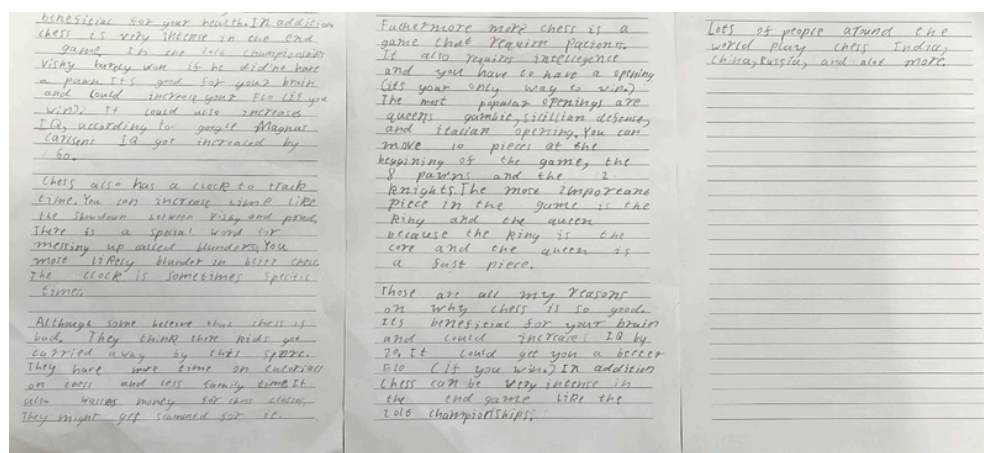 benefitial for your health. In addition
chess is very intense in the end
game. In the 2016 championships
Vishy barely won if he did'ne have
a pawn. It's good for your brain
and could increase your Elo (if you
win). It could also increases
IQ, according to google Magnus
Carlsens IQ got increased by
60.
Chess also has a clock to track
time. You can increase time like
the showdown between Vishy and
There is a special word for
messing up called blunders. You
most likely blunder in blitz chess.
The clock is sometimes specific
times.
Although some believe that chess is
bad. They think there kids get
carried away by this sport.
They have more time on tutorials
on chess and less family time. It
also wastes money for chess classes,
They might get scammed for it.
Futhermore more chess is a
game that require Pacions.
It also requires intelligence
and you have to have a opening
(its your only way to win.)
The most popular openings are
queens gambit, Sicillian defense,
and italian opening. You can
move 10 pieces at the
beggining of the game, the
8 pawns and the 2
knights. The most important
piece in the game is the
King and the queen
because the king is the
core and the queen is
a fast piece.
Those are all my reasons
on why chess is so good.
Its benefitial for your brain
and could increase IQ by
20. It could get you a better
Elo (if you win.) In addition
Chess can be very intense in
the end game like the
2016 championships.
Lots of people around the
world play chess India,
China, Russia, and alot more.